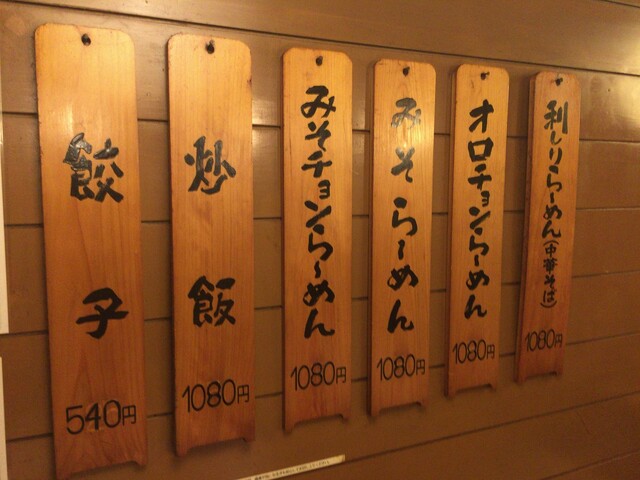 利しりらーめん(中華そば)
1080円
オロチョンらーめん
1080円
みそらーめん
1080円
みそチョンらーめん
1080円
炒飯
1080円
餃子
540円